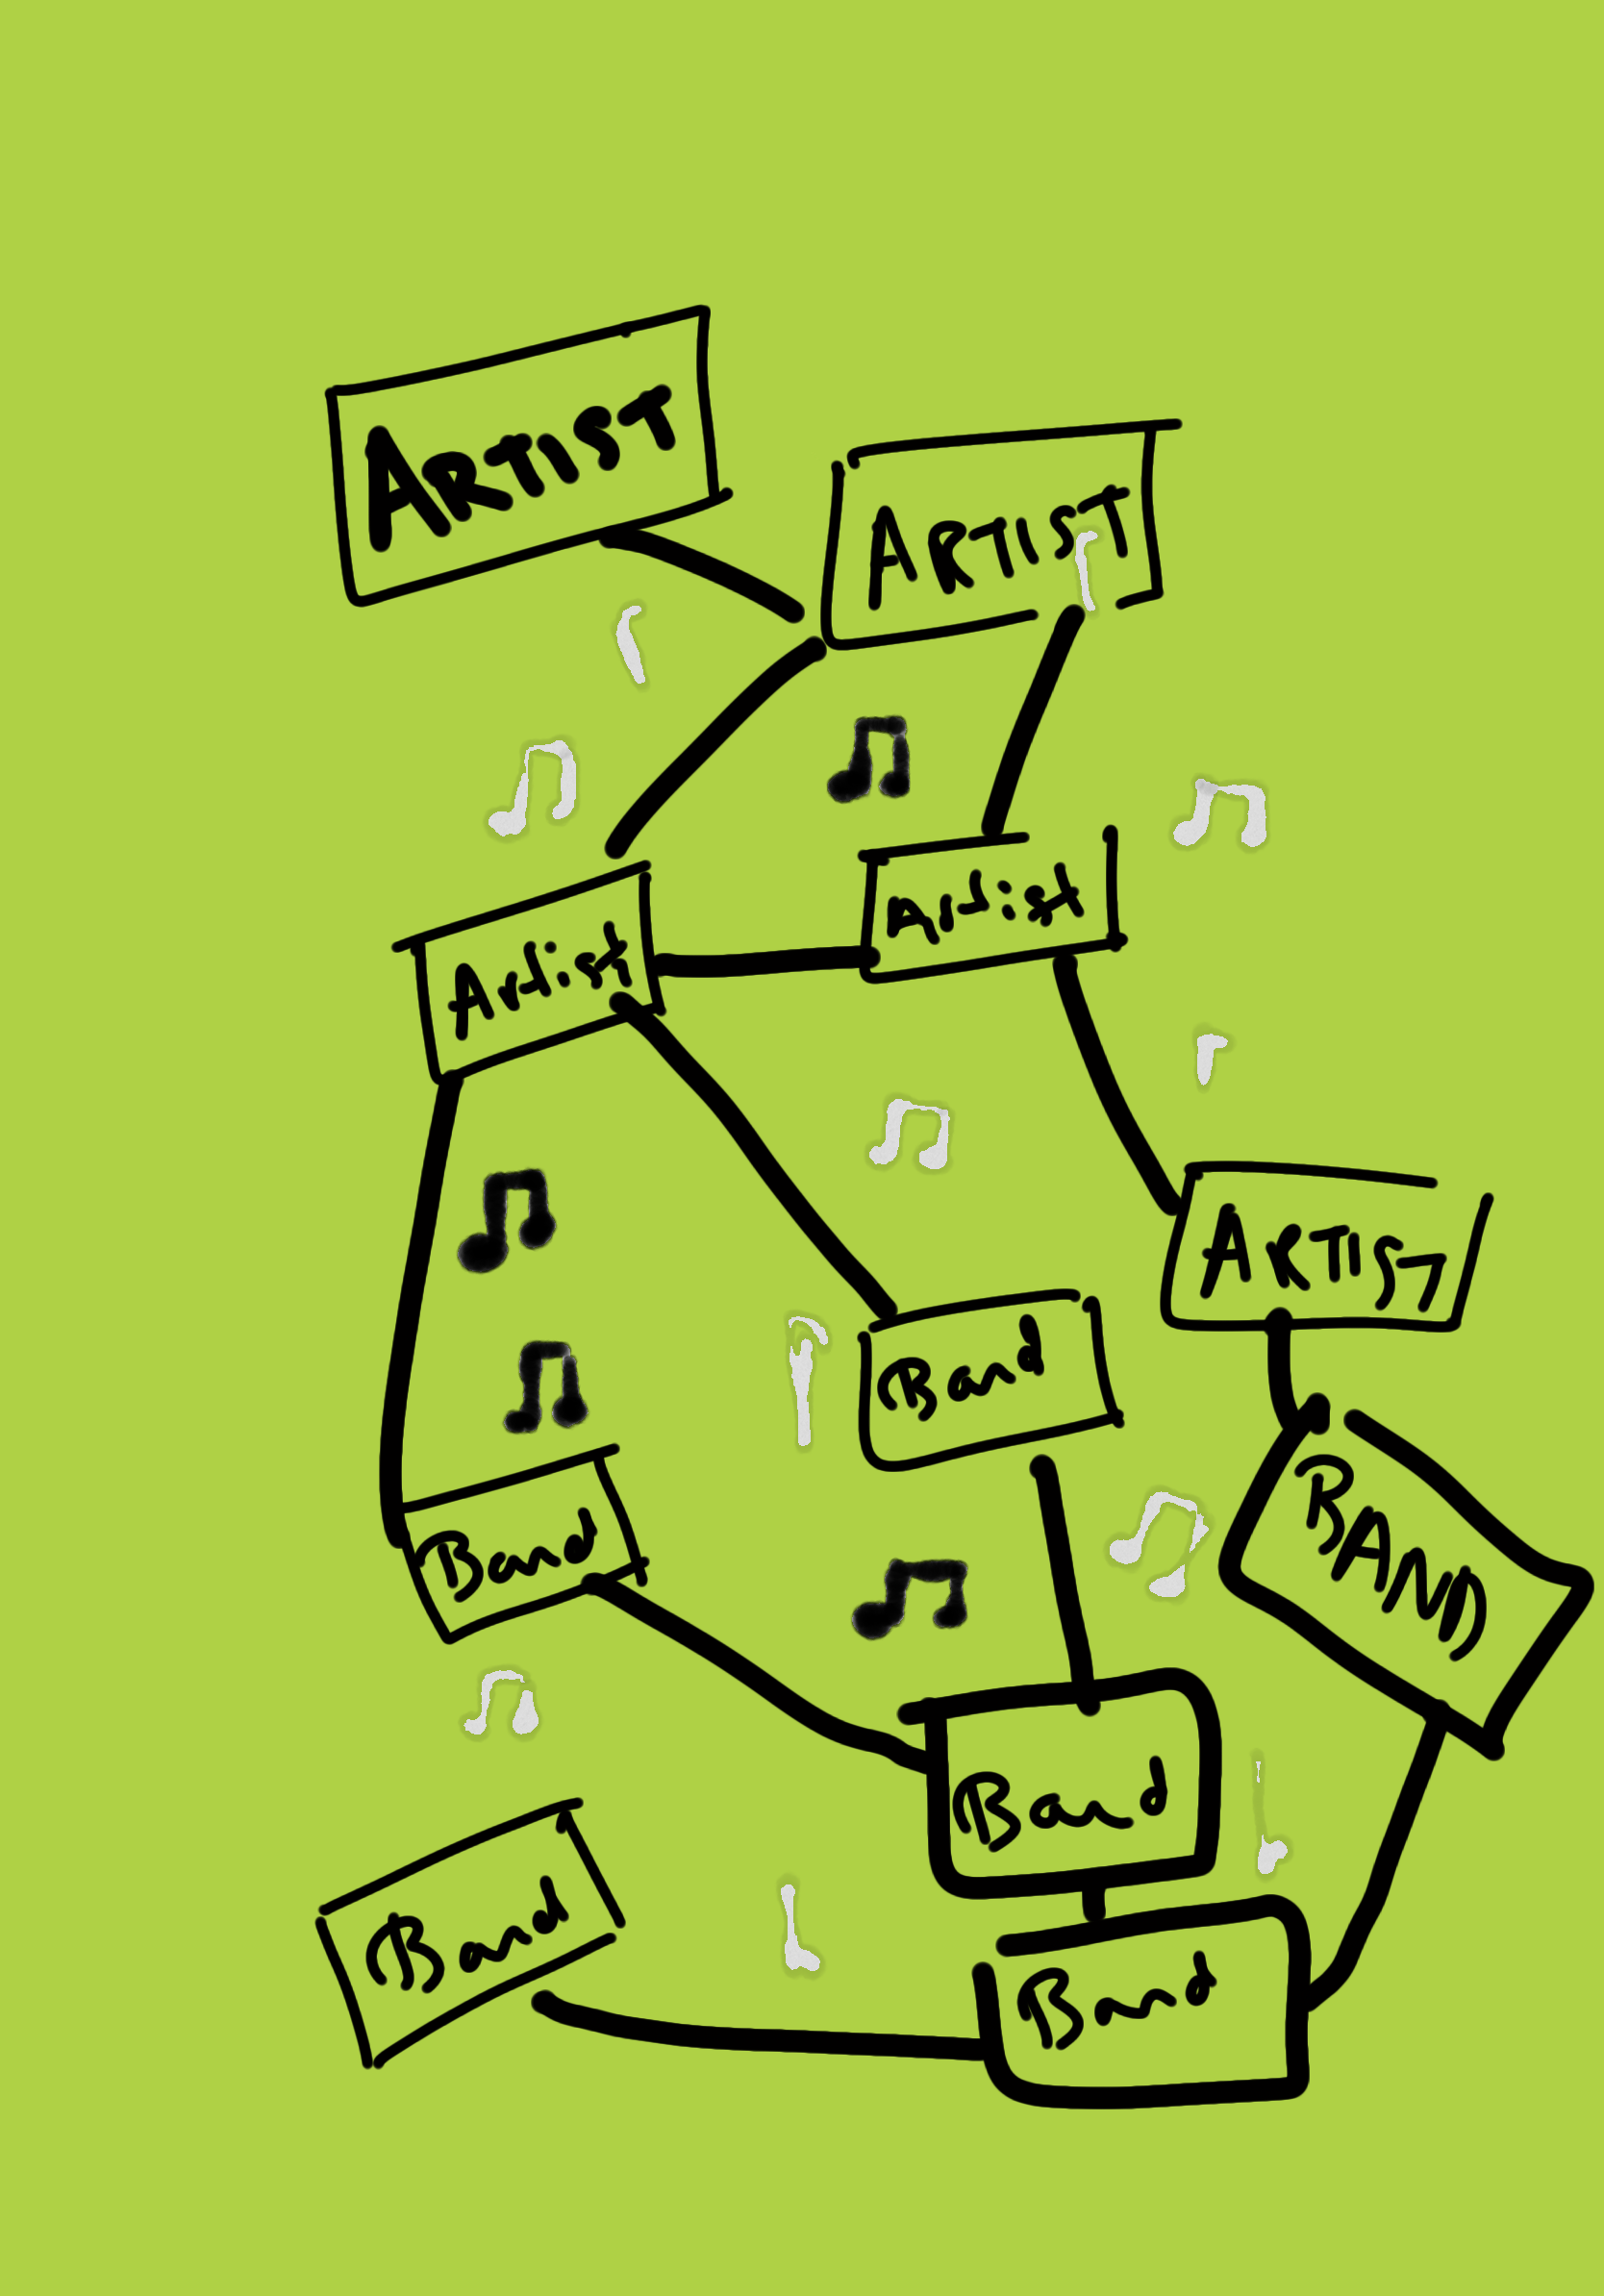 ARTIST
ARTIST
Artist
Artist
ARTIST
Band
BAND
Band
Band
Band
Band